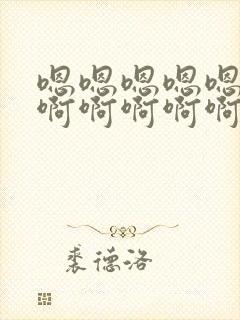 嗯嗯嗯嗯嗯
啊啊啊啊啊
裘德洛